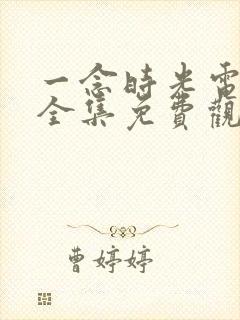 一念時光電
全集免費觀
曹婷婷